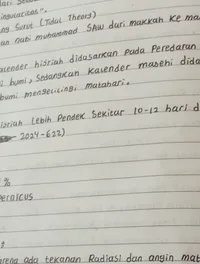 ingularitas".
ng Surut (Tidal Theory)
an nabi muhammad SAW dari makkah ke ma
kalender hijriah didasarkan Pada Peredaran
i bumi, sedangkan kalender masehi dida
bumi mengelilingi matahari.
ijriah lebih Pendek Sekitar 10-12 hari d
2024-622)
%
pernicus
?
arena ada tekanan Radiasi dan angin mat